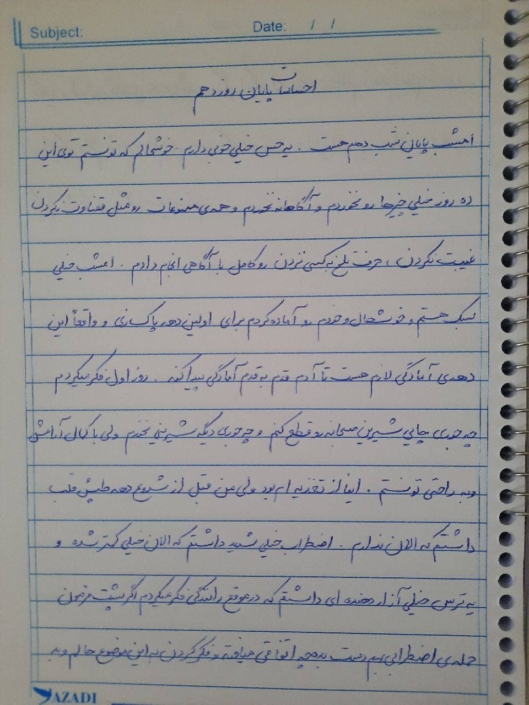 Subject:
Date: / /
احساسات پایان روز دهم
امشب پایان شب دهم هست . یه حس خیلی خوبی دارم خوشحالم که تونستم توی این
ده روز خیلی چیزها رو نخوردم و آگاهانه نخوردم و همه‌ی ممنوعات رو مثل قضاوت نکردن
غیبت نکردن ، حرف تلخ به کسی نزدن رو کامل با آگاهی انجام دادم . امشب خیلی
سبک هستم و خوشحال و خودم رو آماده کردم برای اولین دهه پاکسازی و واقعاً این
دهه‌ی آمادگی لازم هست تا آدم قدم به قدم آمادگی پیدا کنه . روز اول فکر میکردم
چه جوری چایی شیرین صبحانه رو قطع کنم و چه جوری دیگه شیرینی نخورم ولی با کمال آرامش
و به راحتی تونستم . اینا از تغذیه ام بود ولی من قبل از شروع دهه طپش قلب
داشتم که الان ندارم . اضطراب خیلی شدید داشتم که الان خیلی کمتر شده و
یه ترس خیلی آزار دهنده ای داشتم که در موقع رانندگی فکر میکردم اگر پشت فرمون
حمله‌ی اضطرابی بهم دست بده چه اتفاقی میافته و فکر کردن به این موضوع حالم رو بد
AZADI